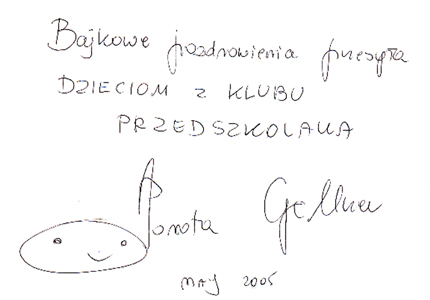 Bajkowe pozdrowienia przesyła
DZIECIOM z KLUBU
PRZEDSZKOLAKA
Dorota Gellner
MAJ 2005